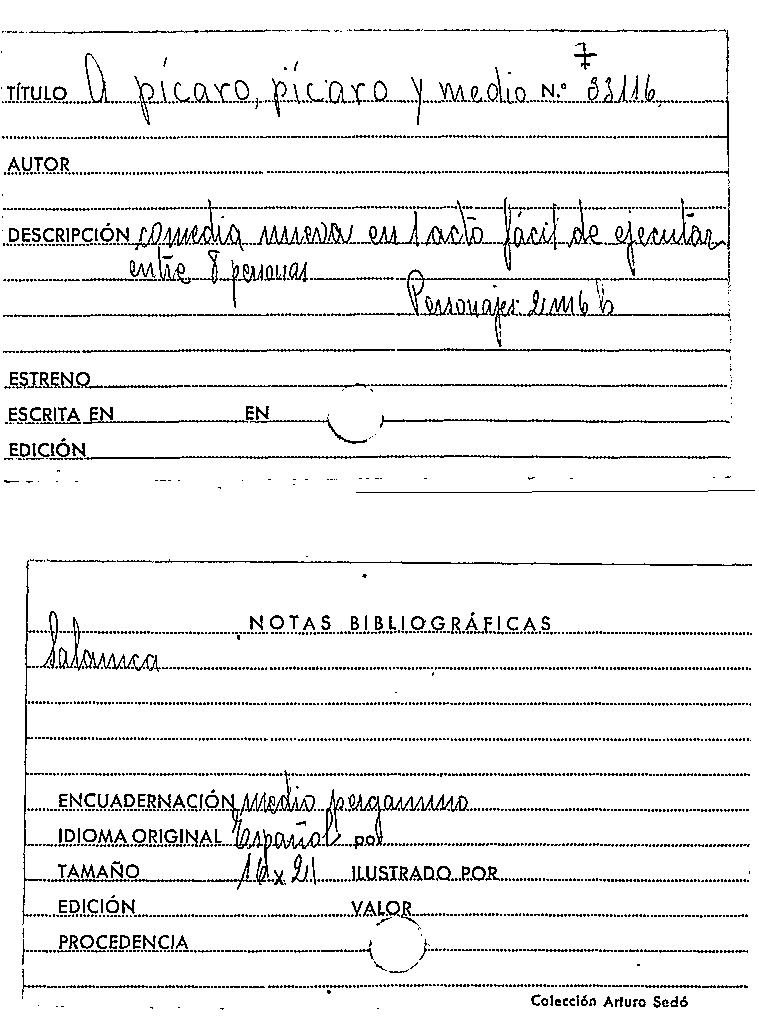 7
TÍTULO A pícaro, pícaro y medio N.º 33116
AUTOR
DESCRIPCIÓN comedia nueva en 1 acto fácil de ejecutar
entre 8 personas
Personajes 2 m 6 h
ESTRENO
ESCRITA EN EN
EDICIÓN
NOTAS BIBLIOGRÁFICAS
ENCUADERNACIÓN medio pergamino
IDIOMA ORIGINAL Español por
TAMAÑO 16 x 21 ILUSTRADO POR
EDICIÓN VALOR
PROCEDENCIA
Colección Arturo Sedó